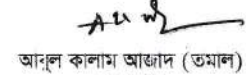 আবুল কালাম আজাদ (তমাল)